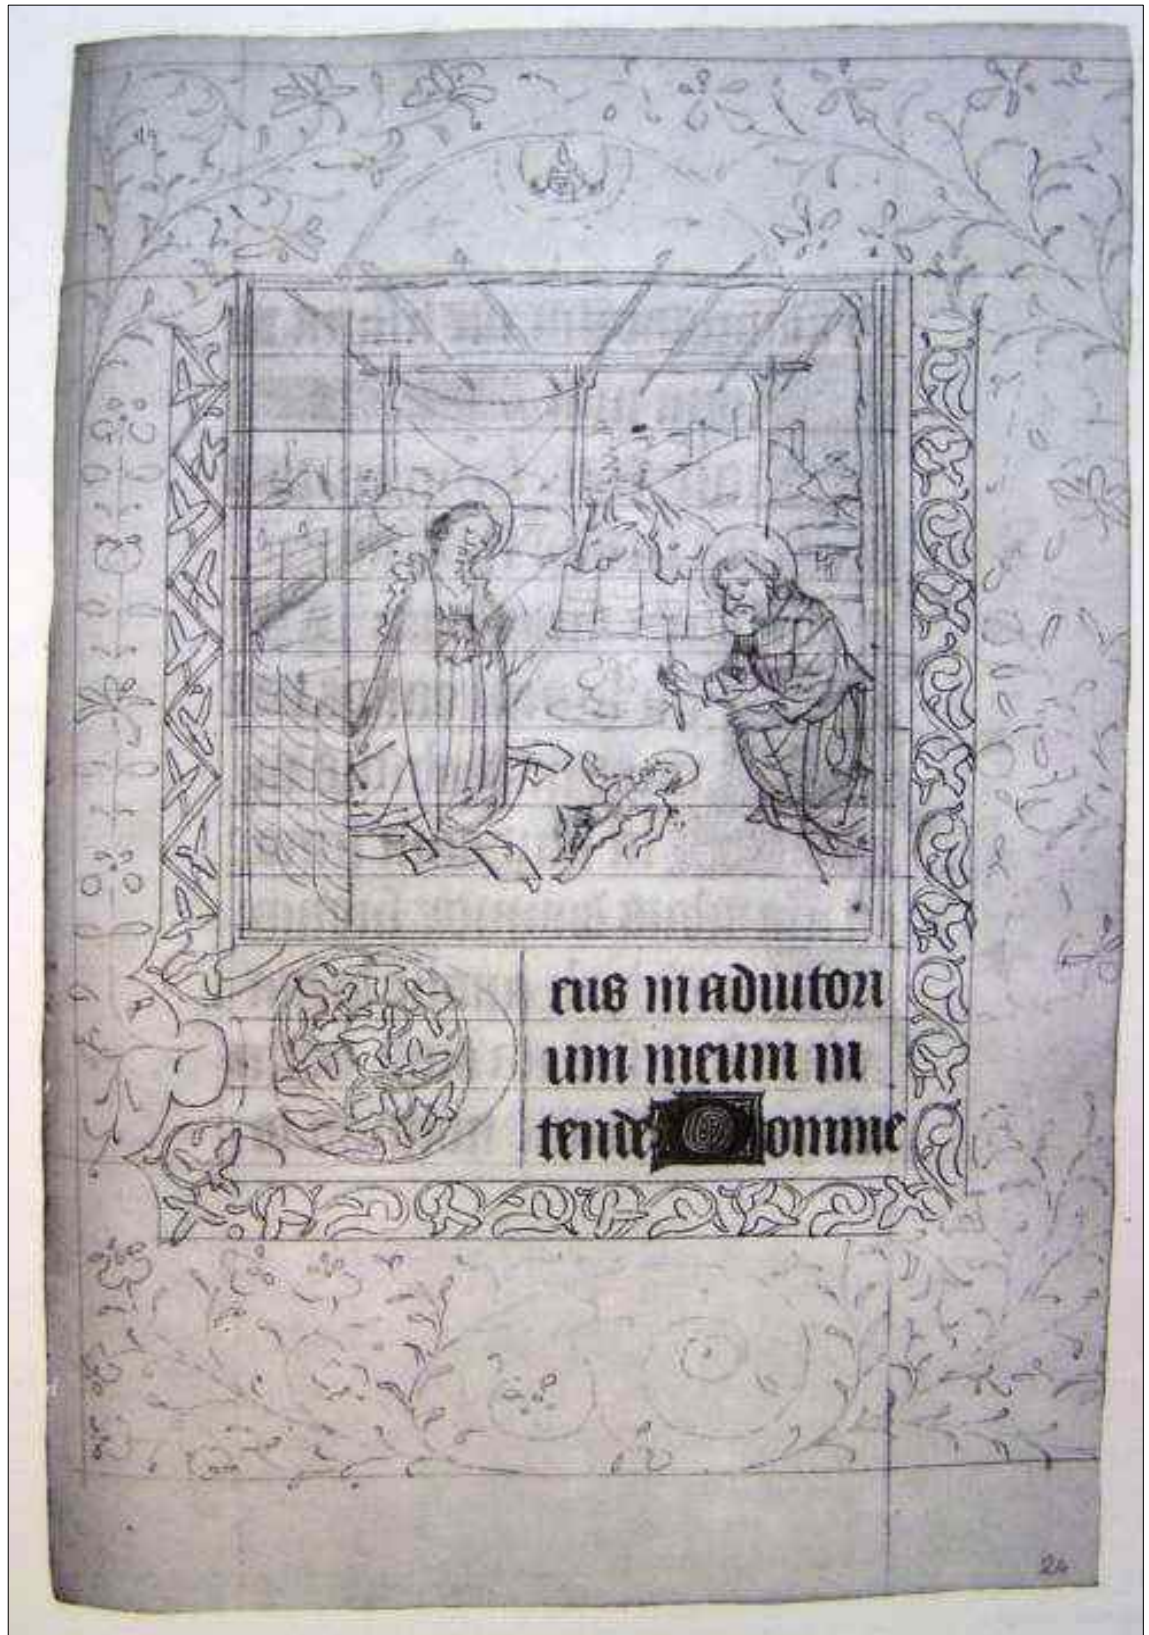 eus in adiutori
um meum in
tende omine
24